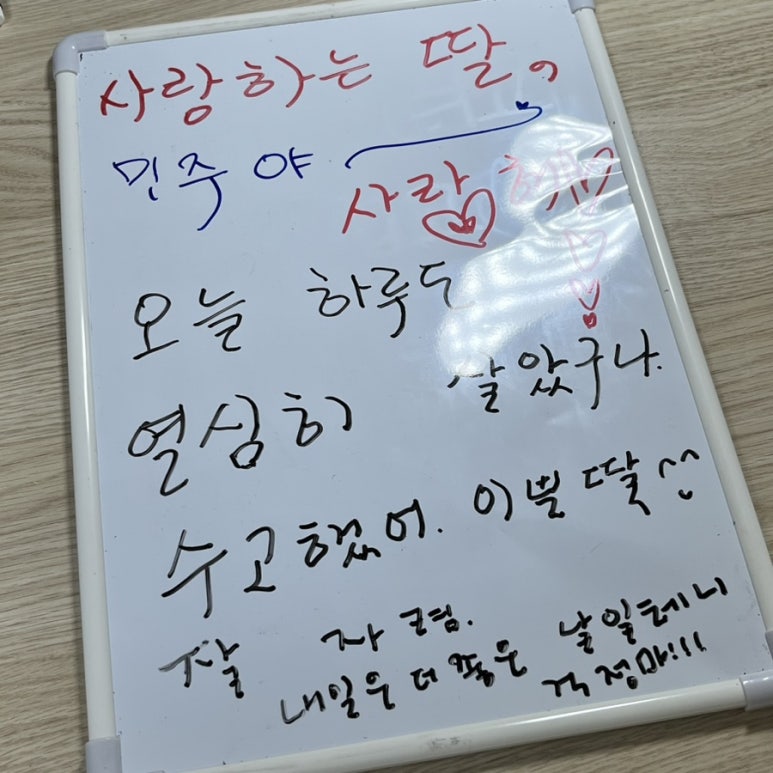 사랑하는 딸。
민주야
사랑해
오늘 하루도
열심히 살았구나.
수고했어. 이쁜 딸 ^^
잘 자렴.
내일은 더 좋은 날일테니
걱정마!!!